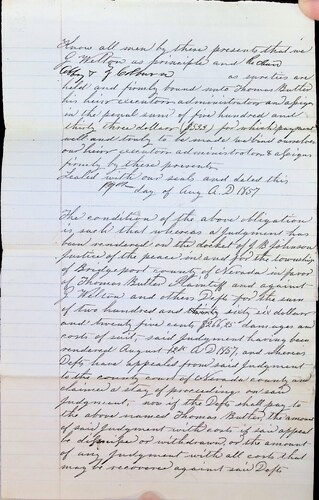 Know all men by these presents that we
G Wilton as principle and
& J Colburn as sureties are
held and firmly bound unto Thomas Butler
his heirs executors administrators and assigns
in the penal sum of five hundred and
thirty three dollars ($533) for which payment
well and truly to be made we bind ourselves
our heirs executors administrators & assigns
firmly by these presents
Sealed with our seals and dated this
19th day of Aug A.D. 1857
The condition of the above obligation
is such that whereas a judgment has
been rendered on the docket of J B Johnson
Justice of the peace in and for the township
of Bridgeport county of Nevada in favor
of Thomas Butler Plaintiff and against
G Wilton and others Defts for the sum
of two hundred and sixty six dollars
and twenty five cents $266,25 damages and
costs of suit, said judgment having been
rendered August 12th A.D 1857, and whereas
Defts have appealed from said Judgment
to the county court of Nevada county and
claimed a stay of proceeding on said
Judgment, now if the Defts shall pay to
the above named Thomas Butler, the amount
of said Judgment with costs if said appeal
be dismissed or withdrawn, or the amount
of any Judgment with all costs that
may be recovered against said Defts